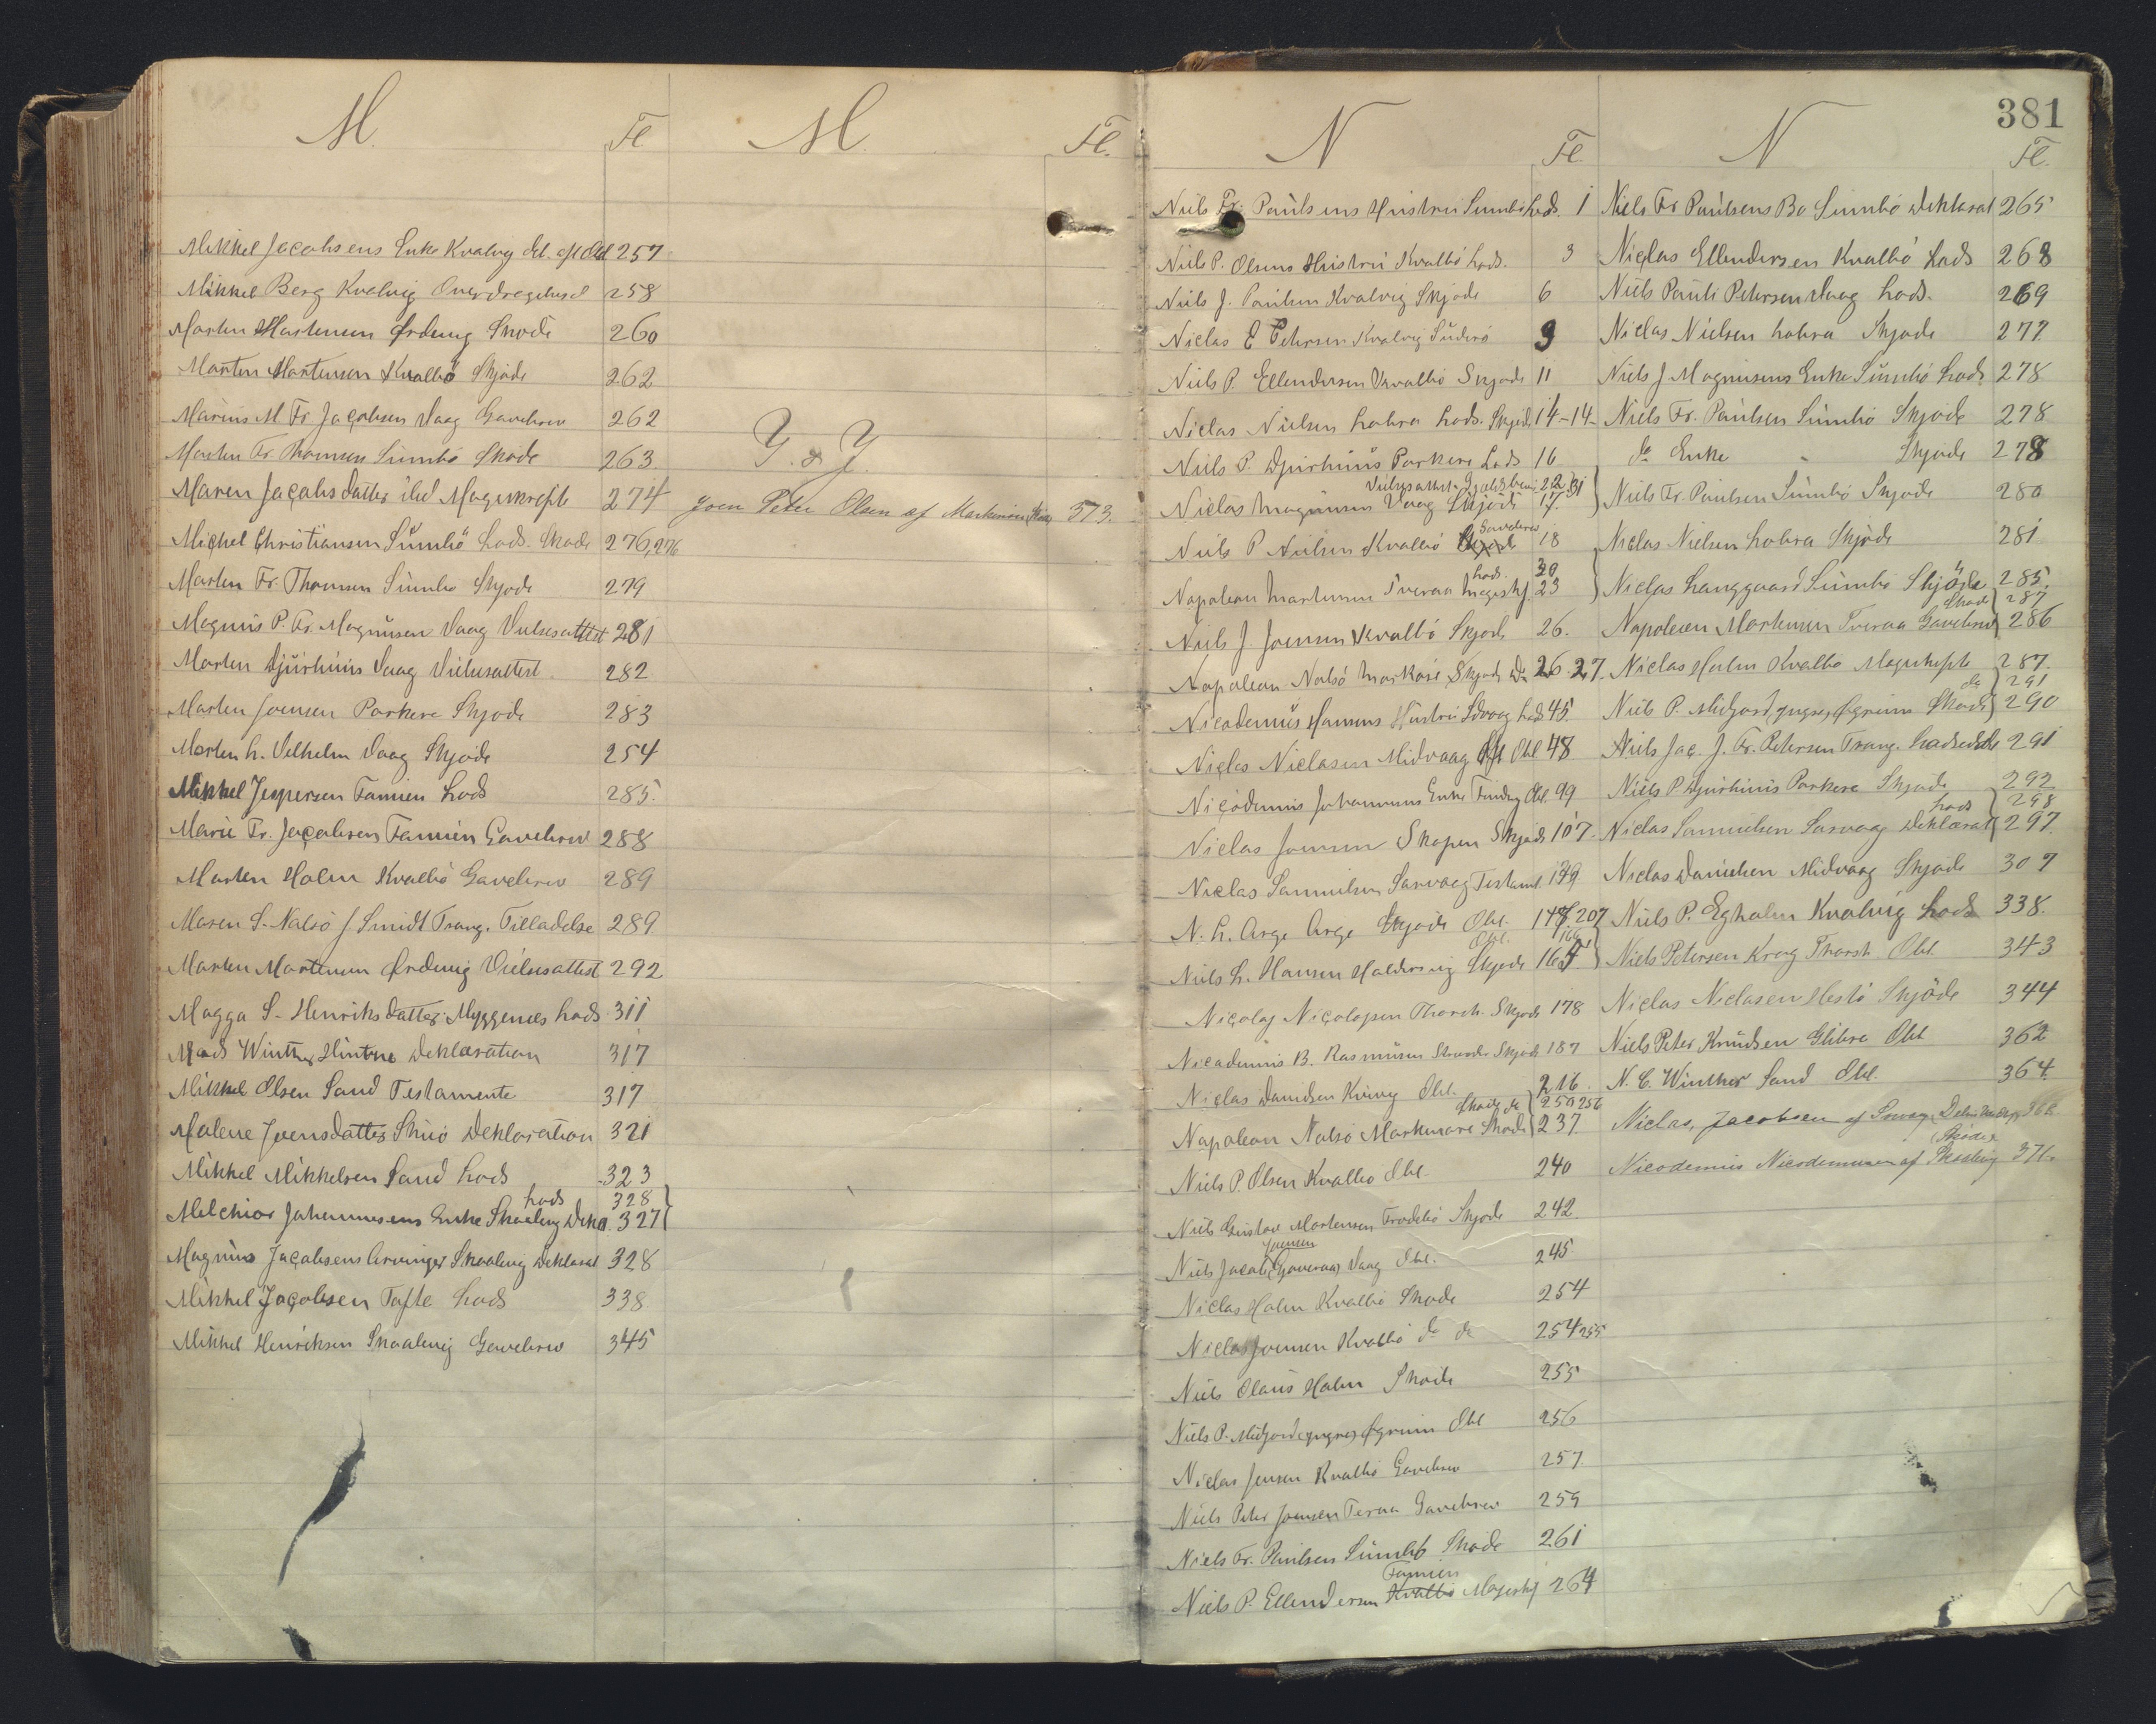 M.
Fl
Mikkel Jacobsens Enke Kvalvig 257
Mikkel Berg Kvalvig Overdragelses 258
Morten Mortensen Ørdevig Skøde 260
Morten Mortensen Kvalbö Skjöde 262
Marius M Fr Jacobsen Vaag Gavebrev 262
Morten Fr. Thomsen Sumbö Skøde 263
Maren Jacobsdatter 274
Michel Christiansen Sumbö hads. Skøde 276, 276
Morten Fr. Thomsen Sumbö Skjöde 279
Magnus P. Fr. Magnusen Vaag Vielsesattest 281
Morten Djurhuus Vaag Vielsesattest 282
Morten Joensen Porkere Skjöde 283
Morten h. Vilhelm Vaag Skjöde 254
Mikkel Jespersen Famien hads 285.
Marie Fr. Jacobsen Famien Gavebrev 288
Morten Holm Kvalbö Gavebrev 289
Maren S. Nalsö f. Smidt Trang. Tilladelse 289
Morten Mortensen Ørdevig Vielsesattest 292
Magga S. Henriksdatter Myggenæs hads 311
Mads Winther Deklaration 317
Mikkel Olsen Sand Testamente 317
Malene Joensdatter Skuö Deklaration 321
Mikkel Mikkelsen Sand hads 323
hads 328
Melchior Johannesens Enke Skaalevig Dekla. 327
Magnus Jacobsens Arvinger Skaalevig Deklarat 328
Mikkel Jacobsen Tofte hads 338
Mikkel Henriksen Skaalevig Gavebrev 345
M.
Fl.
Y. & J.
Joen Peter Olsen af 373.
N
Fl
Niels Fr. Paulsens Hustru Sumbö hads. 1
Niels P. Olsens Hustru Kvalbö hads. 3
Niels J. Poulsen Kvalvig Skjöde 6
Niclas E Petersen Kvalvig Suderö 9
Niels P. Ellendersen Kvalbö Skjöde 11
Niclas Nielsen hobra hads. Skjöde 14-14
Niels P. Djurhuus Porkere hads 16
Vielsesattest 22 31
Niclas Magnussen Vaag Skjöde 17.
Gavebrev
Niels P Nielsen Kvalbö 18
hads. 30
Napoleon Mortensen Tveraa 23
Niels J. Joensen Kvalbö Skjöde 26.
Napoleon Nolsö Skjöde Do 26. 27.
Nicodemus Hansens Hustru hads 45.
Niclas Niclasen Midvaag Obl 48
Nicodemus Johannesens Enke Obl. 99
Niclas Joensen Skopen Skjöde 107.
Niclas Samuelsen Sorvaag Testamt. 139
N. h. Arge Arge Skjöde Obl. 148, 207
Obl. 166
Niels h. Hansen Haldersvig Skjöde 165
Nicolaj Nicolajsen Thorsh. Skjöde 178
Nicodemus B. Rasmussen Skjöde 187
Niclas Danielsen Kvivig Obl. 216.
Skøde do 250 256
Napoleon Nolsö Skøde 237
Niels P. Olsen Kvalbö Obl. 240
Niels Gustav Mortensen Froðebö Skjöde 242.
Joensen
Niels Jacob Vaag Obl. 245
Niclas Holm Kvalbö Skøde 254
Niclas Joensen Kvalbö do do 254 255
Niels Olaus Holm Skøde 255
Niels P. Midjord yngre, Øgrim Obl 256
Niclas Jensen Kvalbö Gavebrev 257.
Niels Peter Joensen Gavebrev 259
Niels Fr. Poulsen Sumbö Skøde 261
Famien
Niels P. Ellendersen Kvalbö Mageskf 264
381
N
Fl.
Niels Fr Paulsens Bo Sumbö Deklarat 265
Niclas Ellendersen Kvalbö hads 268
Niels Pauli Petersen Vaag hads. 269
Niclas Nielsen hobra Skjöde 277
Niels J Magnusens Enke Sumbö hads 278
Niels Fr. Paulsen Sumbö Skjöde 278
do Enke Skjöde 278
Niels Fr. Paulsen Sumbö Skjöde 280
Niclas Nielsen hobra Skjöde 281
Niclas Langgaard Sumbö Skjöde 285.
Skøde 287
Napoleon Mortensen Tveraa Gavebrev 286
Niclas Holm Kvalbö 287.
do 291
Niels P. Midjord yngre, Øgrim Skøde 290
Niels Jac. J. Fr. Petersen Trang. 291
Niels P Djurhuus Porkere Skjøde 292
hads 298
Niclas Samuelsen Sorvaag Deklarat 297.
Niclas Danielsen Midvaag Skjøde 307
Niels P. Egholm Kvalvig hads 338.
Niels Petersen Krog Thorsh Obl. 343
Niclas Niclasen Hestö Skjöde 344
Niels Peter Knudsen Glibre Obl 362
N. C. Winther Sand Obl. 364.
Niclas, Jacobsen af 366.
Skøde
Nicodemus Nicodemussen af 371.